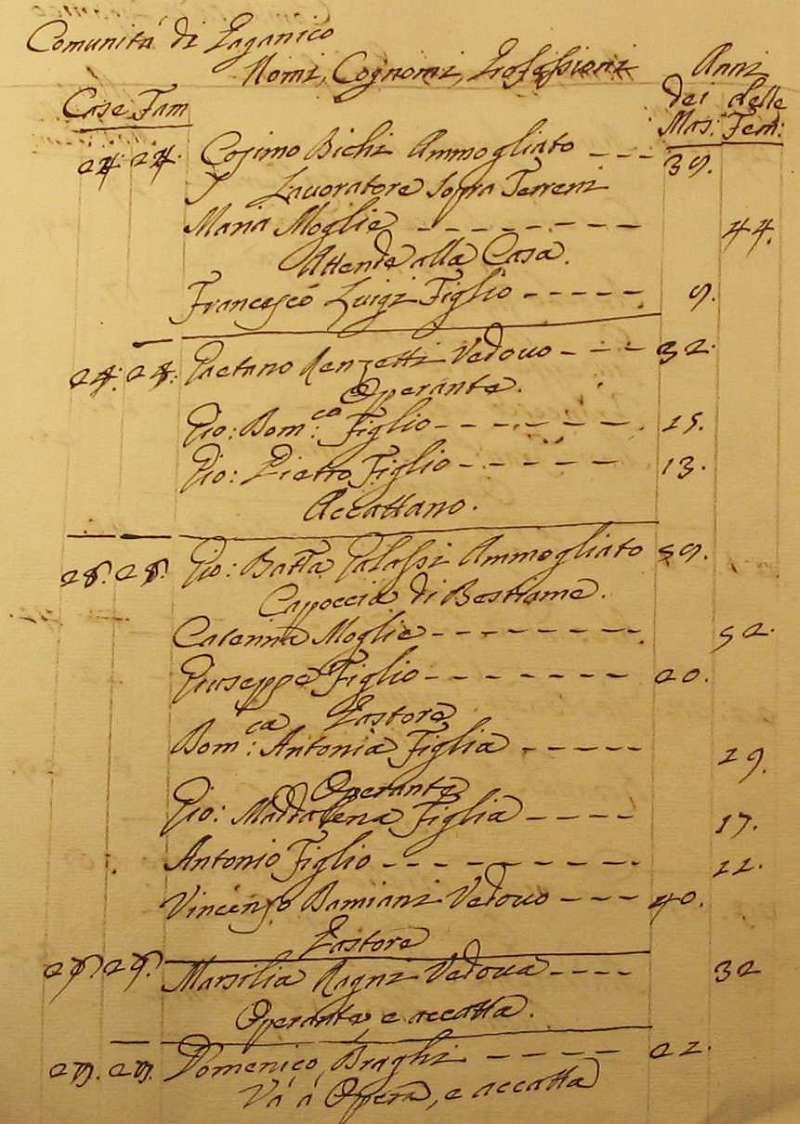 Comunità di Paganico
Nomi, Cognomi, Professioni Anni
Case Fam dei delle
Mas: Fem:
24: 24. Cosimo Bichi Ammogliato --- 39.
Lavoratore sopra Terreni
Maria Moglie -------- 44.
Attende alla Casa.
Francesco Luigi Figlio ----- 9.
Gaetano Renzetti Vedovo --- 32.
Operante.
Gio: Dom:co Figlio ------- 15.
Gio: Pietro Figlio ------ 13.
Accattano.
Gio: Batta Galassi Ammogliato 59.
Capoccia di Bestiame.
Caterina Moglie -------- 52.
Giuseppe Figlio ------- 20.
Pastore
Dom:ca Antonia Figlia ----- 29.
Operante
Gio: Maddalena Figlia ---- 17.
Antonio Figlio --------- 12.
Vincenzo Damiani Vedovo --- 40.
Pastore
Marsilia Ragni Vedova ---- 32
Operante, e accatta.
Domenico Braghi ----- 22.
Và à Opera, e accatta